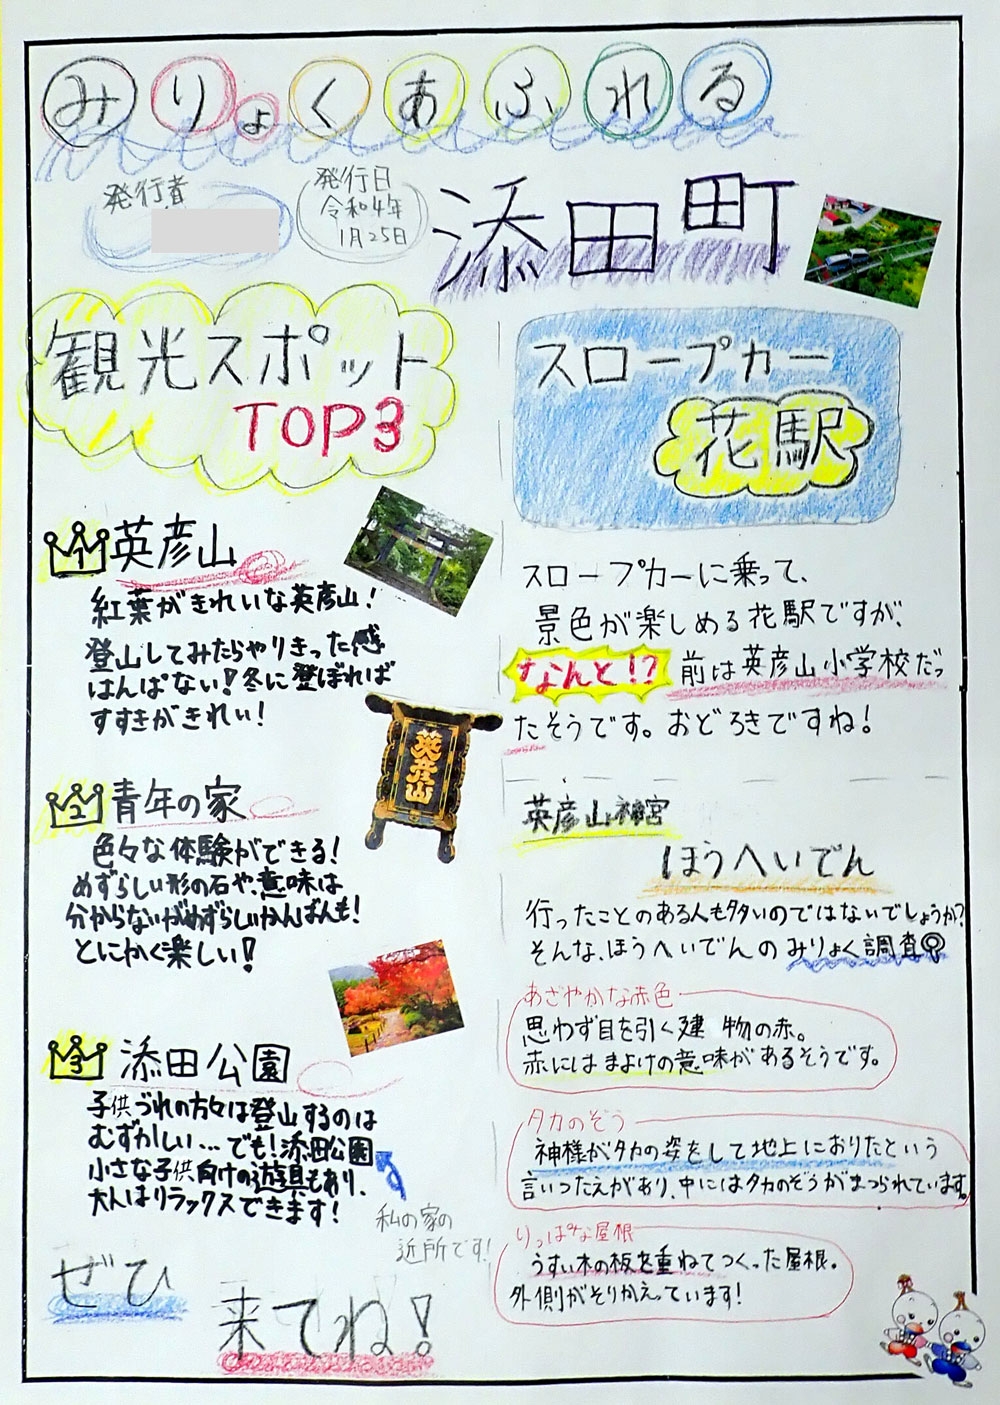 みりょくあふれる
発行者
発行日
令和4年
1月25日
添田町
観光スポット
TOP3
1 英彦山
紅葉がきれいな英彦山!
登山してみたらやりきった感
はんぱない!冬に登ぼれば
すすきがきれい!
英彦山
2 青年の家
色々な体験ができる!
めずらしい形の石や、意味は
分からないがめずらしいかんばんも!
とにかく楽しい!
3 添田公園
子供づれの方々は登山するのは
むずかしい…でも!添田公園
小さな子供向けの遊具もあり、
大人はリラックスできます!
私の家の
近所です!
ぜひ
来てね!
スロープカー
花駅
スロープカーに乗って、
景色が楽しめる花駅ですが、
なんと!?前は英彦山小学校だっ
たそうです。おどろきですね!
英彦山神宮
ほうへいでん
行ったことのある人も多いのではないでしょうか?
そんな、ほうへいでんのみりょく調査
あざやかな赤色
思わず目を引く建物の赤。
赤にはまよけの意味があるそうです。
タカのぞう
神様がタカの姿をして地上におりたという
言いつたえがあり、中にはタカのぞうがまつられています。
りっぱな屋根
うすい木の板を重ねてつくった屋根。
外側がそりかえっています!